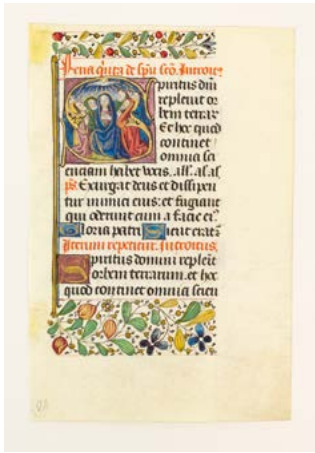 Feria q̄nta de sp̄u sc̄o. Introit
Spiritus dn̄i
repleuit or
bem terrar
Et hoc quod
continet
omnia sci
enciam habet uocis. all. al. al.
ps. Exurgat deus et dissipen
tur inimici eius: et fugiant
qui oderunt eum a facie ei
Gloria patri Sicut erat
Iterum repetitur. Introitus
Spiritus domini repleuit
orbem terrarum. et hoc
quod continet omnia scien